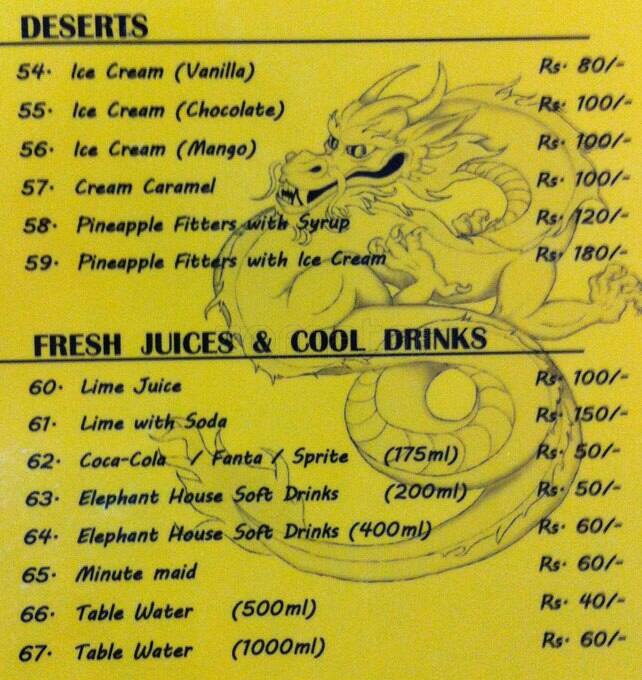 DESERTS
54. Ice Cream (Vanilla) Rs. 80/-
55. Ice Cream (Chocolate) Rs. 100/-
56. Ice Cream (Mango) Rs. 100/-
57. Cream Caramel Rs. 100/-
58. Pineapple Fitters with Syrup Rs. 120/-
59. Pineapple Fitters with Ice Cream Rs. 180/-
FRESH JUICES & COOL DRINKS
60. Lime Juice Rs. 100/-
61. Lime with Soda Rs. 150/-
62. Coca-Cola / Fanta / Sprite (175ml) Rs. 50/-
63. Elephant House Soft Drinks (200ml) Rs. 50/-
64. Elephant House Soft Drinks (400ml) Rs. 60/-
65. Minute maid Rs. 60/-
66. Table Water (500ml) Rs. 40/-
67. Table Water (1000ml) Rs. 60/-